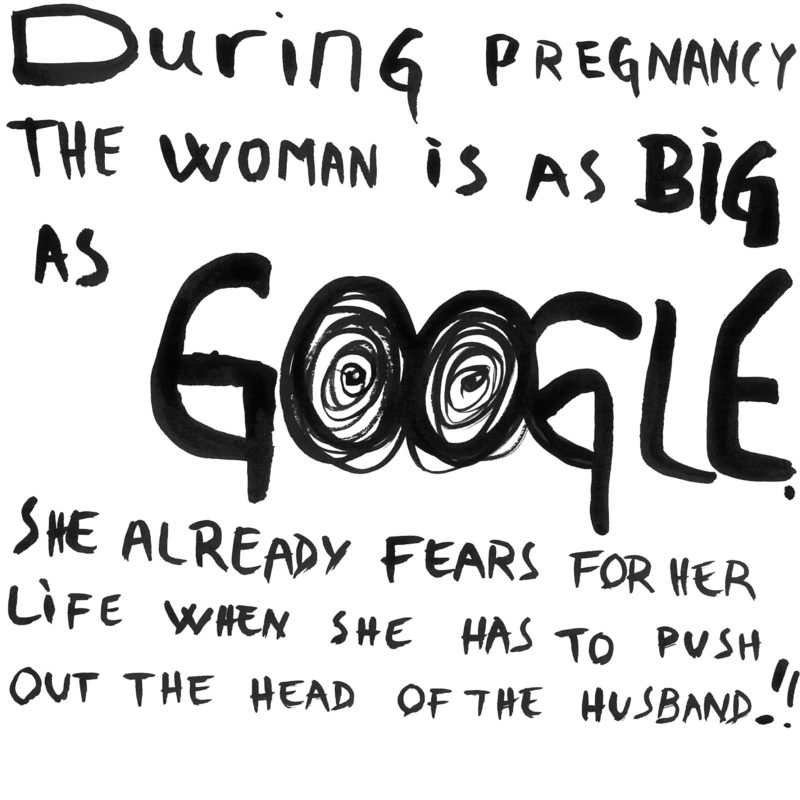 DURiNG PREGNANCY
THE WOMAN iS AS BiG
AS GOOGLE.
SHE ALREADY FEARS FOR HER
LiFE WHEN SHE HAS TO PUSH
OUT THE HEAD OF THE HUSBAND.!!